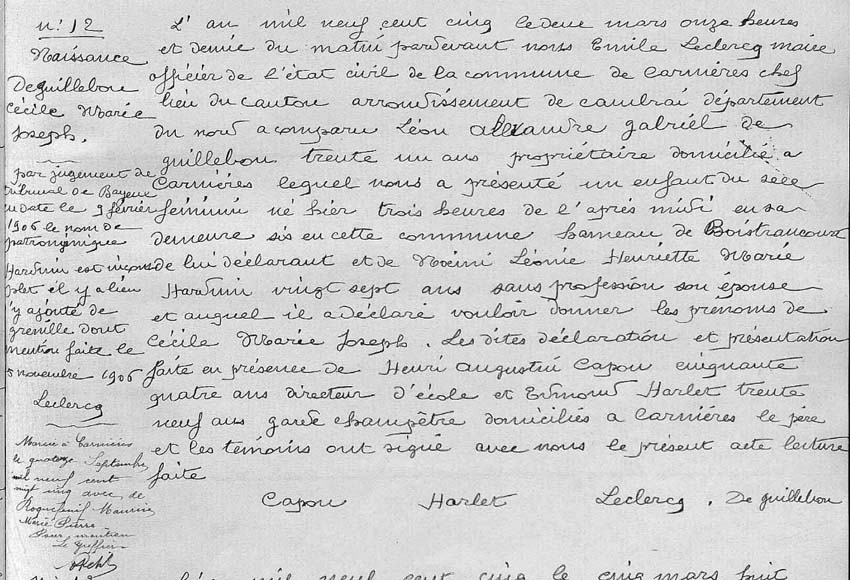 n° 12
Naissance
De guillebon
Cécile Marie
Joseph.
par jugement de
tribunal de Bayeux
en date le 9 février
1906 le nom de
patronymique
Hardouin est incom
plet il y a lieu
d'y ajouté de
grenille dont
mention faite le
5 novembre 1906
Leclercq
Mariée à Carnières
le quatorze Septembre
mil neuf cent
vingt cinq avec de
Roquefeuil Maurice
Marie Pierre
Pour mention
Le Greffier
L'an mil neuf cent cinq le deux mars onze heures
et demie du matin pardevant nous Emile Leclercq maire
officier de l'état civil de la commune de Carnières chef
lieu du canton arrondissement de Cambrai département
du nord a comparu Léon alexandre gabriel de
guillebon trente un ans propriétaire domicilié a
Carnières lequel nous a présenté un enfant du sexe
féminin né hier trois heures de l'après midi en sa
demeure sis en cette commune hameau de Boistrancourt
de lui déclarant et de Noémi Léonie Henriette Marie
Hardouin vingt sept ans sans profession son épouse
et auquel il a déclaré vouloir donner les prénoms de
Cécile Marie Joseph. Les dites déclaration et présentation
faite en présence de Henri Augustin Capon cinquante
quatre ans directeur d'école et Edmond Harlet trente
neuf ans garde champêtre domiciliés a Carnières le père
et les témoins ont signé avec nous le présent acte lecture
faite
Capon Harlet Leclercq. De guillebon
mil neuf cent cinq le cinq mars huit